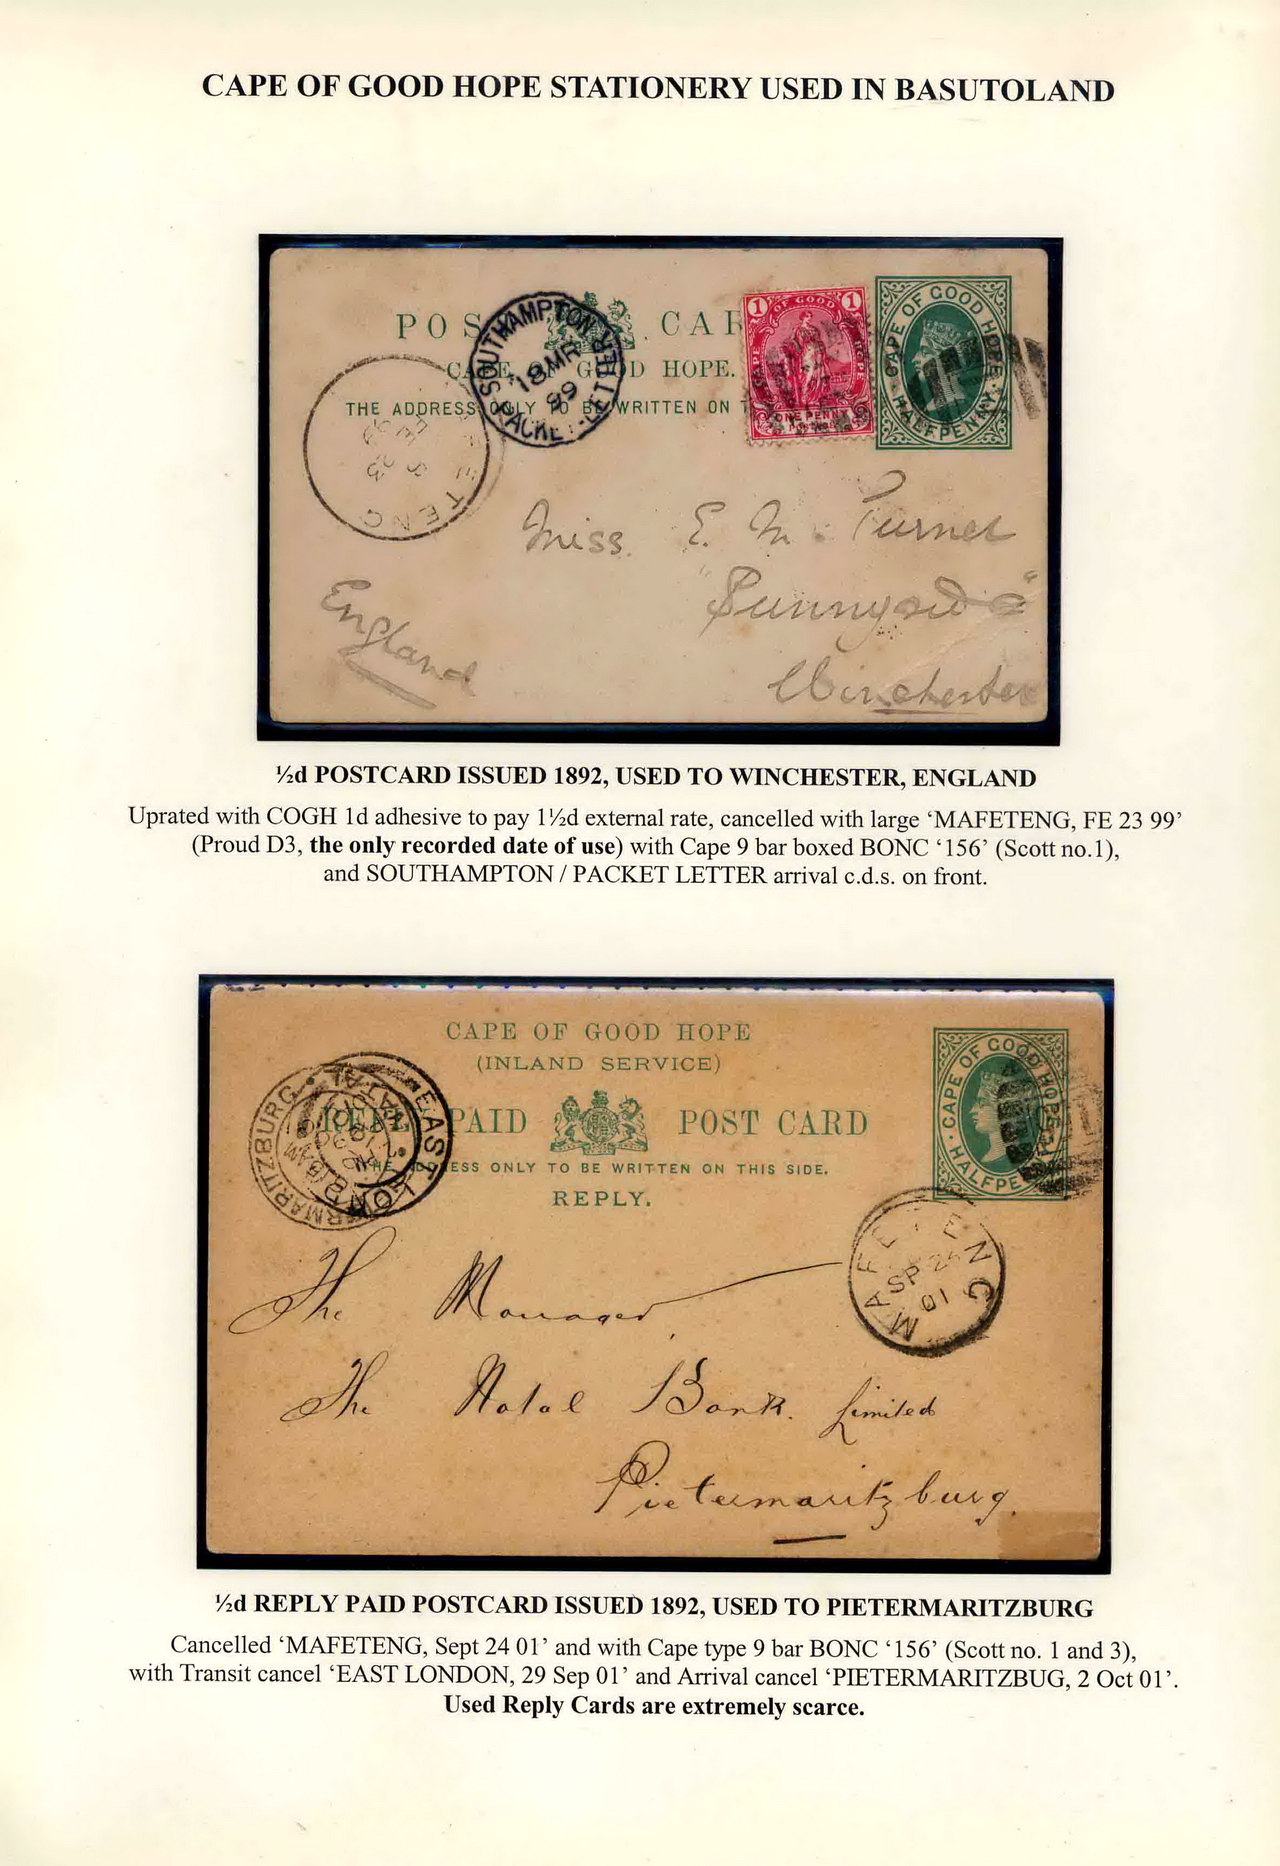 CAPE OF GOOD HOPE STATIONERY USED IN BASUTOLAND
CAPE OF GOOD HOPE
HALFPENNY
1 OF GOOD 1
CAPE HOPE
ONE PENNY
HOPE.
THE ADDRESS ONLY TO BE WRITTEN ON
SOUTHAMPTON
PACKET-LETTER
18 MR
99
ETENG
Miss E. M. Turner
"Sunnyside"
Winchester
England
½d POSTCARD ISSUED 1892, USED TO WINCHESTER, ENGLAND
Uprated with COGH 1d adhesive to pay 1½d external rate, cancelled with large ‘MAFETENG, FE 23 99’
(Proud D3, the only recorded date of use) with Cape 9 bar boxed BONC ‘156’ (Scott no.1),
and SOUTHAMPTON / PACKET LETTER arrival c.d.s. on front.
CAPE OF GOOD HOPE
(INLAND SERVICE)
REPLY PAID POST CARD
THE ADDRESS ONLY TO BE WRITTEN ON THIS SIDE.
REPLY.
CAPE OF GOOD HOPE
HALFPE
EAST LON
ERMARITZBURG
MAFE ENG
SP 24
01
The Manager
The Natal Bank. Limited
Pietermaritzburg.
½d REPLY PAID POSTCARD ISSUED 1892, USED TO PIETERMARITZBURG
Cancelled ‘MAFETENG, Sept 24 01’ and with Cape type 9 bar BONC ‘156’ (Scott no. 1 and 3),
with Transit cancel ‘EAST LONDON, 29 Sep 01’ and Arrival cancel ‘PIETERMARITZBUG, 2 Oct 01’.
Used Reply Cards are extremely scarce.